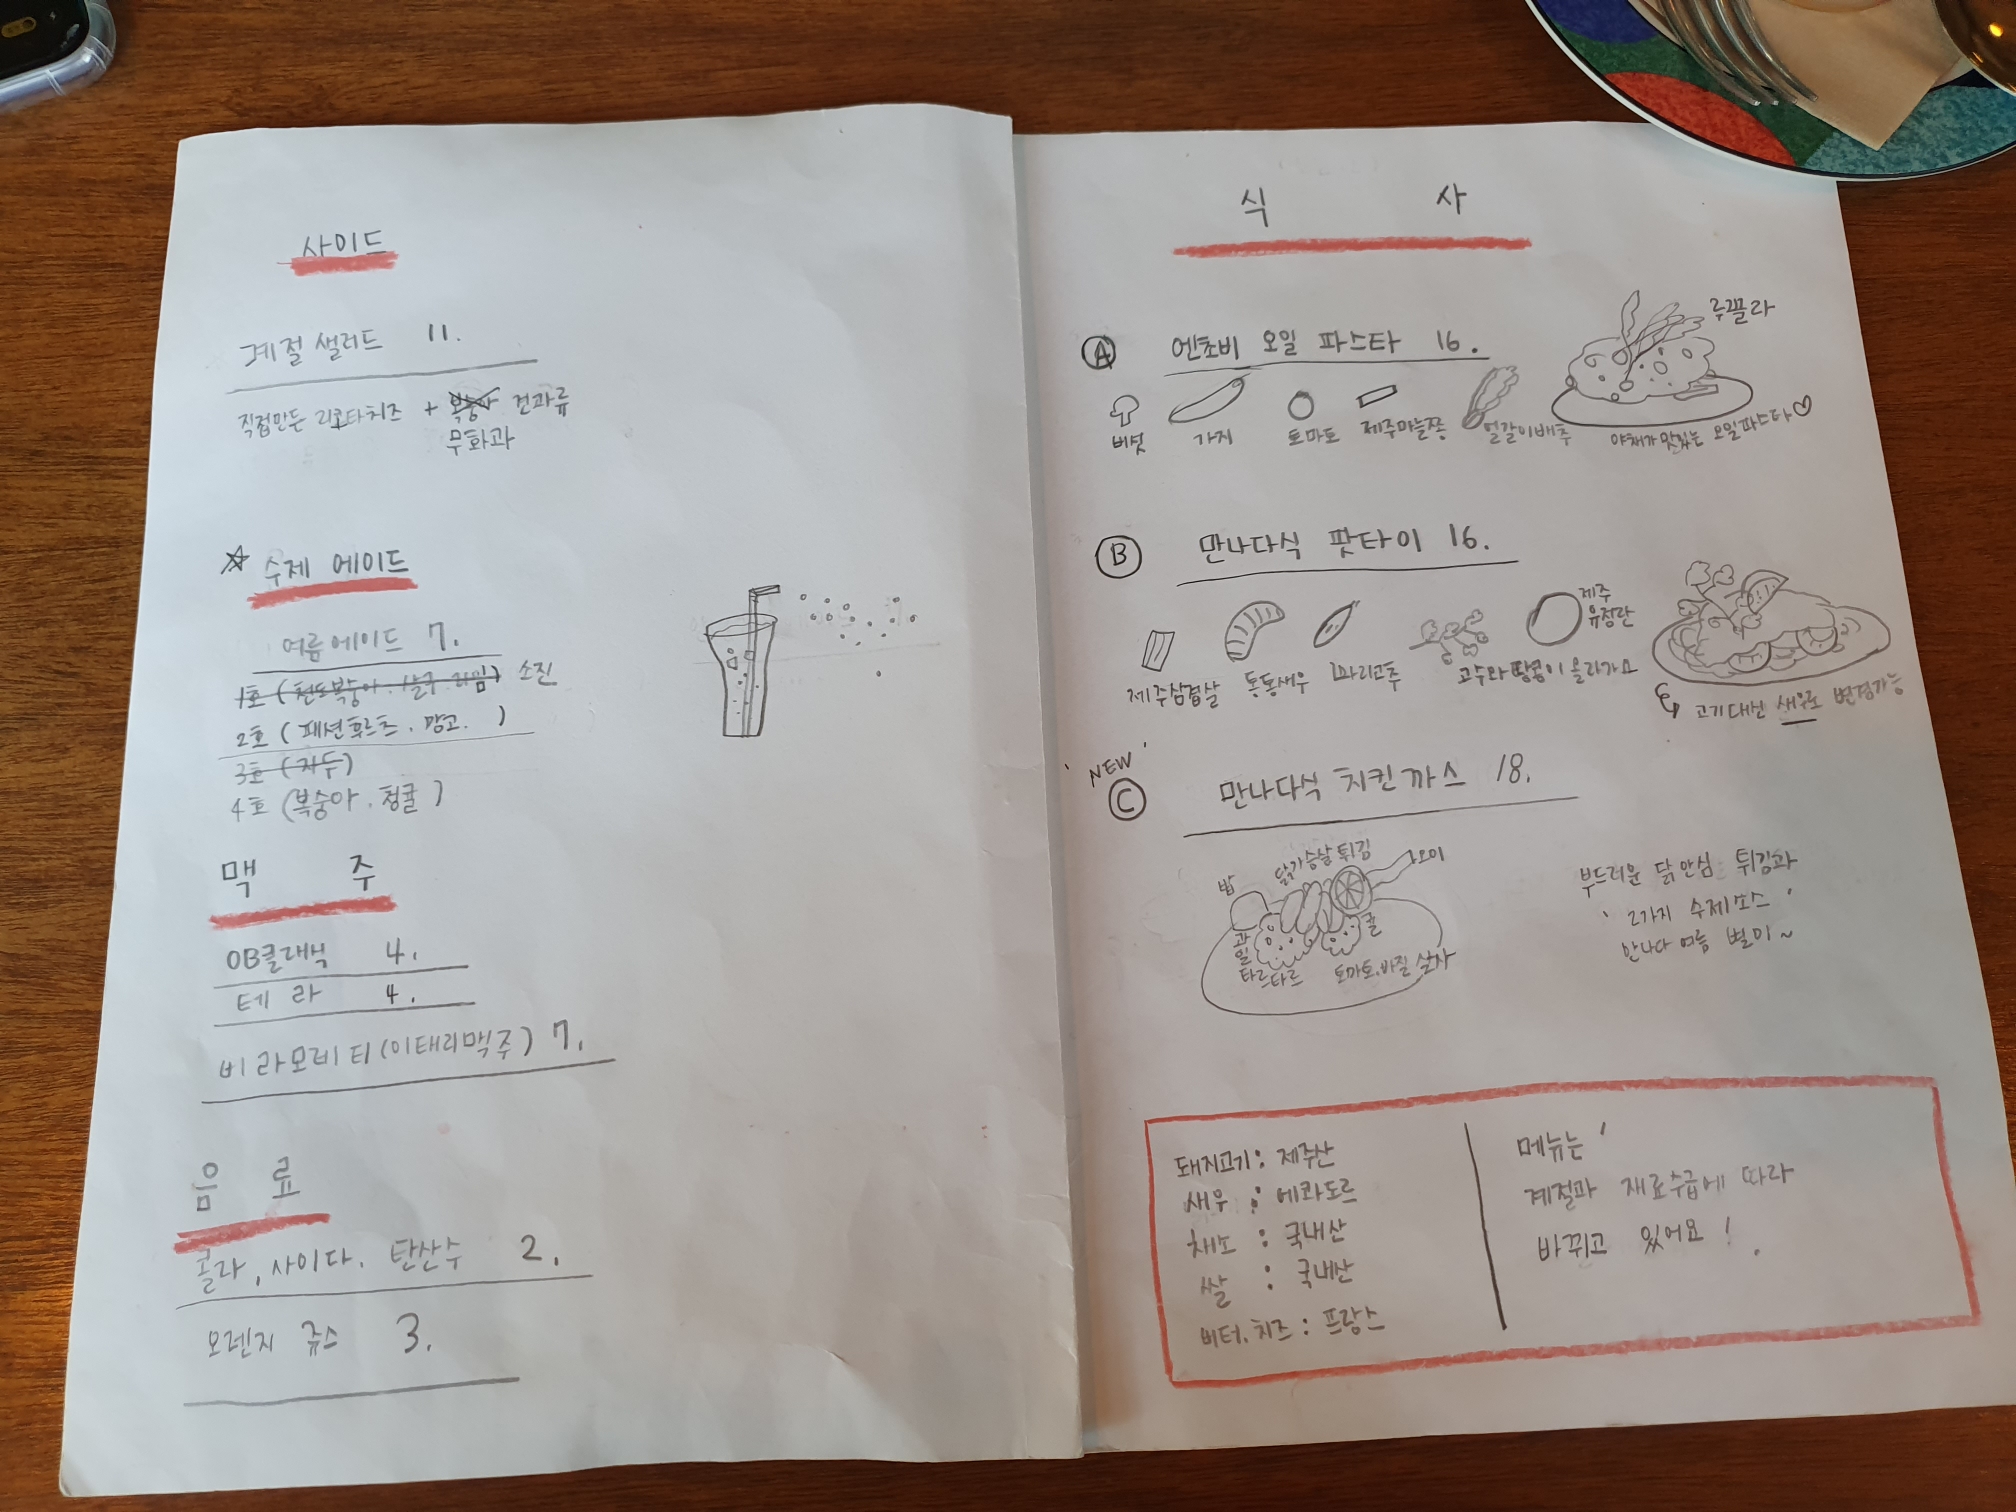 사이드
계절샐러드 11.
직접만든 리코타치즈 + 복숭아 견과류
무화과
수제 에이드
여름에이드 7.
1호 (천도복숭아.살구.라임) 소진
2호 (패션후르츠.망고. )
3호 (자두)
4호 (복숭아.청귤)
맥 주
OB클래식 4.
테라 4.
비라모레티(이태리맥주) 7.
음 료
콜라, 사이다. 탄산수 2.
오렌지 쥬스 3.
식 사
A 엔초비 오일 파스타 16.
루꼴라
버섯 가지 토마토 제주마늘쫑 얼갈이배추 야채가 맛있는 오일파스타♡
B 만나다식 팟타이 16.
제주
유정란
제주삼겹살 통통새우 꽈리고추 고수와 땅콩이 올라가요
고기대신 새우로 변경가능
NEW
C 만나다식 치킨까스 18.
밥 닭가슴살튀김 오이
과일 귤
타르타르 토마토.바질 살사
부드러운 닭안심 튀김과
' 2가지 수제소스 '
만나다 여름 별미~
돼지고기: 제주산
새우 : 에콰도르
채소 : 국내산
쌀 : 국내산
버터.치즈 : 프랑스
메뉴는 '
계절과 재료수급에 따라
바뀌고 있어요!.